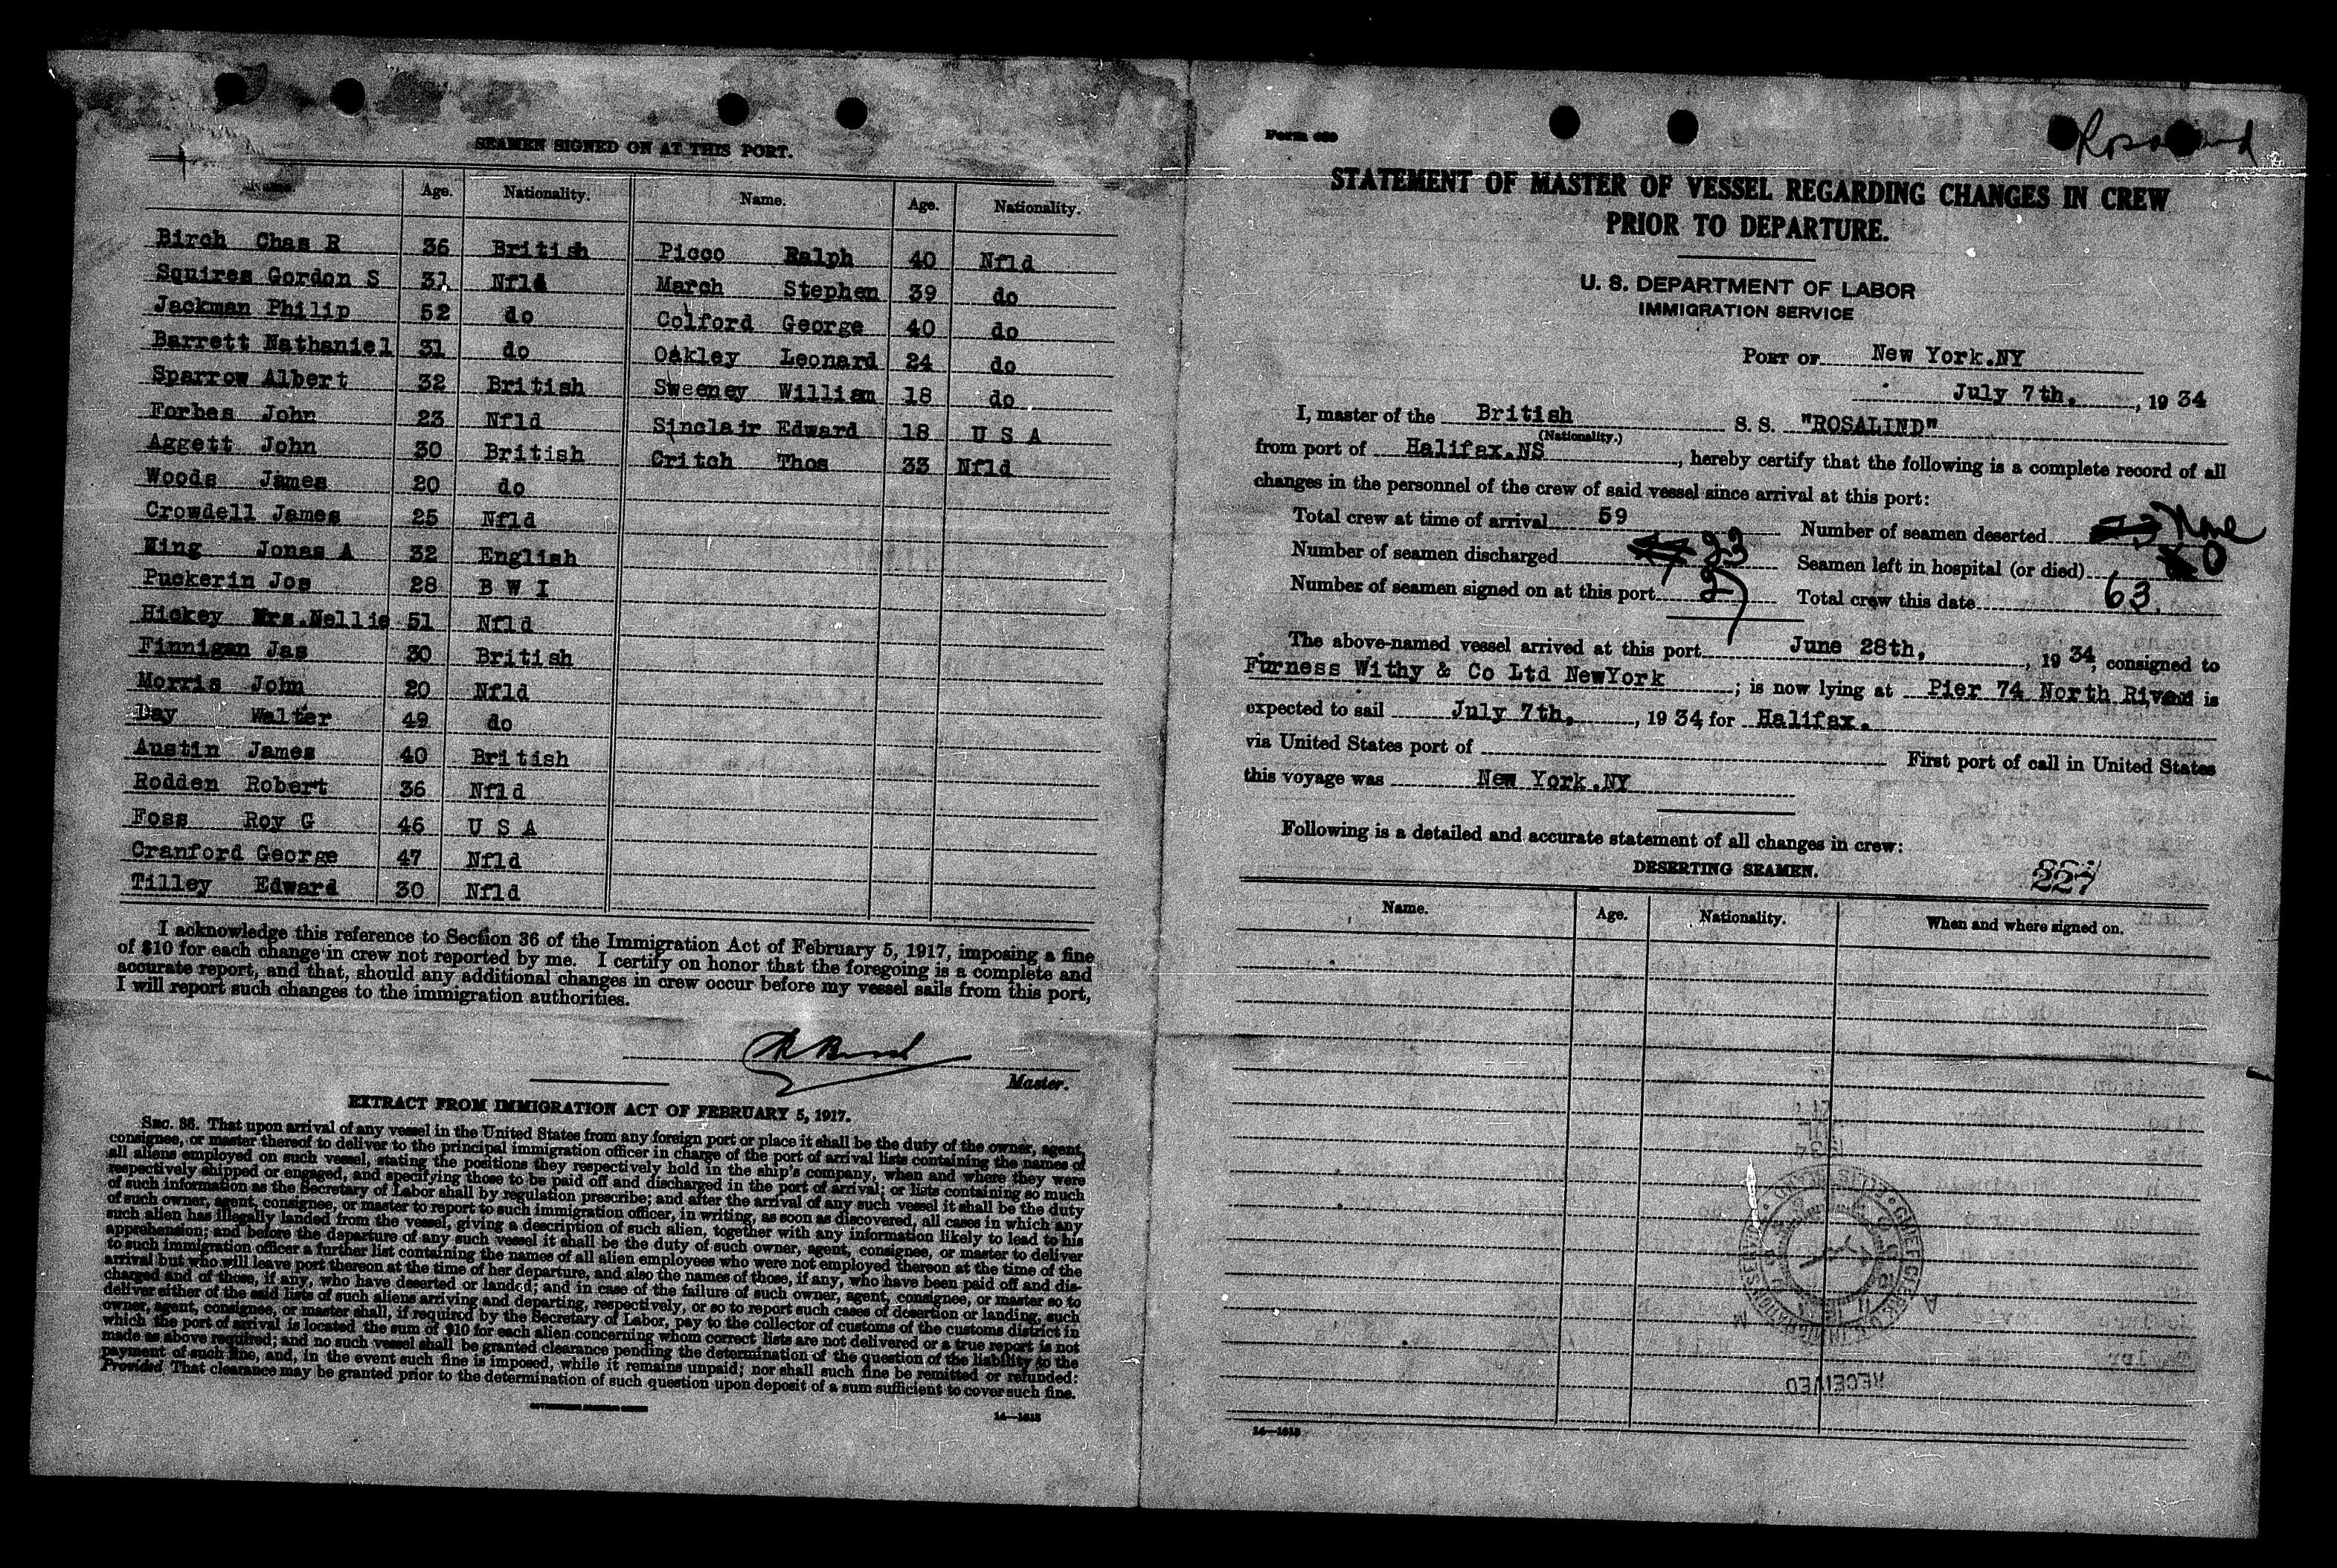 SEAMEN SIGNED ON AT THIS PORT.
Name. Age. Nationality. Name. Age. Nationality.
Birch Chas R 36 British Picco Ralph 40 Nfld
Squires Gordon S 31 Nfld March Stephen 39 do
Jackman Philip 52 do Colford George 40 do
Barrett Nathaniel 31 do Oakley Leonard 24 do
Sparrow Albert 32 British Sweeney William 18 do
Forbes John 23 Nfld Sinclair Edward 18 U S A
Aggett John 30 British Critch Thos 33 Nfld
Woods James 20 do
Crowdell James 25 Nfld
Jonas A 32 English
Puckerin Jos 28 B W I
Hickey Mrs.Nellie 51 Nfld
Finnigan Jas 30 British
Morris John 20 Nfld
Day Walter 49 do
Austin James 40 British
Rodden Robert 36 Nfld
Foss Roy G 46 U S A
Cranford George 47 Nfld
Tilley Edward 30 Nfld
I acknowledge this reference to Section 36 of the Immigration Act of February 5, 1917, imposing a fine
of $10 for each change in crew not reported by me. I certify on honor that the foregoing is a complete and
accurate report, and that, should any additional changes in crew occur before my vessel sails from this port,
I will report such changes to the immigration authorities.
Master.
EXTRACT FROM IMMIGRATION ACT OF FEBRUARY 5, 1917.
SEC. 36. That upon arrival of any vessel in the United States from any foreign port or place it shall be the duty of the owner, agent,
consignee, or master thereof to deliver to the principal immigration officer in charge of the port of arrival lists containing the names of
all aliens employed on such vessel, stating the positions they respectively hold in the ship's company, when and where they were
respectively shipped or engaged, and specifying those to be paid off and discharged in the port of arrival; or lists containing so much
of such information as the Secretary of Labor shall by regulation prescribe; and after the arrival of any such vessel it shall be the duty
of such owner, agent, consignee, or master to report to such immigration officer, in writing, as soon as discovered, all cases in which any
such alien has illegally landed from the vessel, giving a description of such alien, together with any information likely to lead to his
apprehension; and before the departure of any such vessel it shall be the duty of such owner, agent, consignee, or master to deliver
to such immigration officer a further list containing the names of all alien employees who were not employed thereon at the time of the
arrival but who will leave port thereon at the time of her departure, and also the names of those, if any, who have been paid off and dis-
charged and of those, if any, who have deserted or landed; and in case of the failure of such owner, agent, consignee, or master so to
deliver either of the said lists of such aliens arriving and departing, respectively, or so to report such cases of desertion or landing, such
owner, agent, consignee, or master shall, if required by the Secretary of Labor, pay to the collector of customs of the customs district in
which the port of arrival is located the sum of $10 for each alien concerning whom correct lists are not delivered or a true report is not
made as above required; and no such vessel shall be granted clearance pending the determination of the question of the liability to the
payment of such fine, and, in the event such fine is imposed, while it remains unpaid; nor shall such fine be remitted or refunded:
Provided That clearance may be granted prior to the determination of such question upon deposit of a sum sufficient to cover such fine.
14—1618
Form 689
Rosalind
STATEMENT OF MASTER OF VESSEL REGARDING CHANGES IN CREW
PRIOR TO DEPARTURE.
U. S. DEPARTMENT OF LABOR
IMMIGRATION SERVICE
PORT OF New York.NY
July 7th. , 19 34
I, master of the British S. S. "ROSALIND"
(Nationality.)
from port of Halifax.NS , hereby certify that the following is a complete record of all
changes in the personnel of the crew of said vessel since arrival at this port:
Total crew at time of arrival 59 Number of seamen deserted None
Number of seamen discharged 23 Seamen left in hospital (or died) 0
Number of seamen signed on at this port 27 Total crew this date 63.
The above-named vessel arrived at this port June 28th, , 19 34, consigned to
Furness Withy & Co Ltd NewYork ; is now lying at Pier 74 North River and is
expected to sail July 7th. , 19 34 for Halifax.
via United States port of First port of call in United States
this voyage was New York.NY
Following is a detailed and accurate statement of all changes in crew:
DESERTING SEAMEN.
227
Name. Age. Nationality. When and where signed on.
RECEIVED
14—1618